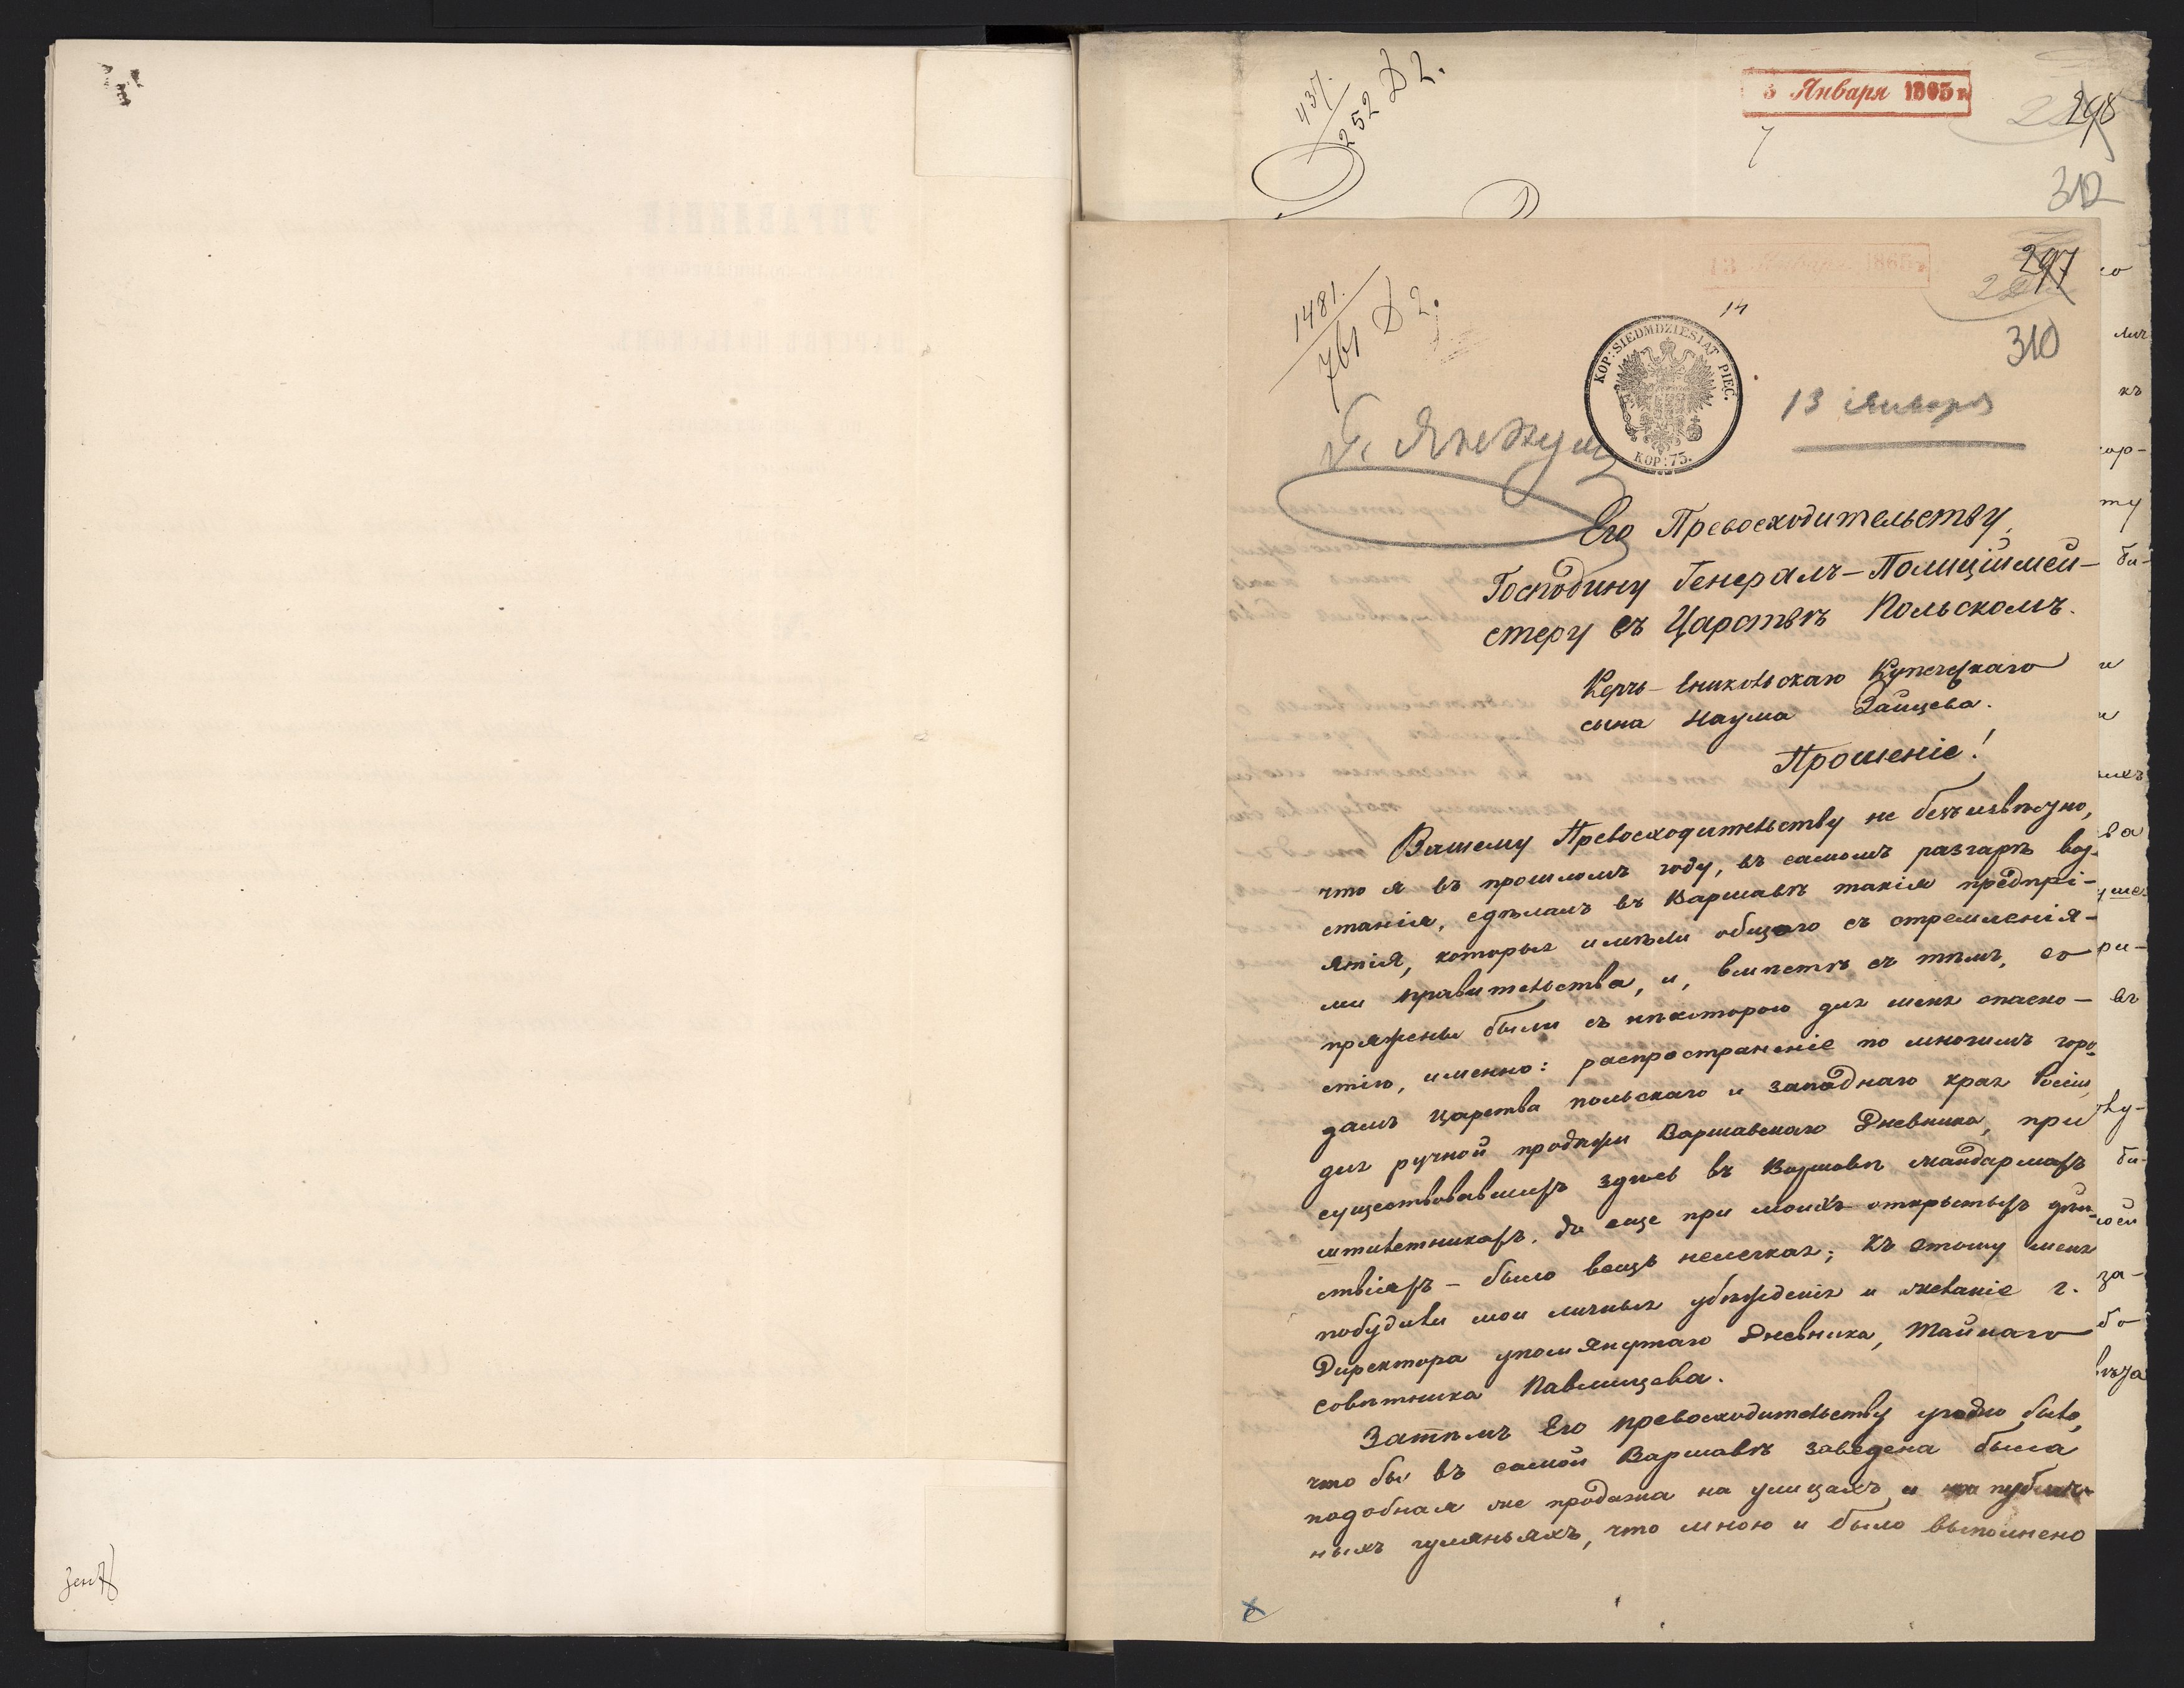 437.
252 Д 2.
3 Января 1865 г.
298
312
1481.
761 Д 2.
297
310
14
KOP: SIEDMDZIESIĄT PIĘĆ.
KOP: 75.
13 Января
Его Превосходительству,
Господину Генералъ-Полиціймей-
стеру въ Царствѣ Польскомъ.
Керчь-Еникольскаго Купеческаго
сына Наума Зайцева.
Прошеніе!
Вашему Превосходительству не безъизвѣстно,
что я въ прошломъ году, въ самомъ разгарѣ воз-
станія, сдѣлалъ въ Варшавѣ такія предпрі-
ятія, которыя имѣли общаго съ стремленія-
ми правительства, и, вмѣстѣ съ тѣмъ, со
пряжены были съ нѣкоторою для меня опасно-
стію, именно: распространеніе по многимъ горо-
дамъ Царства польскаго и западнаго края Россіи,
для ручной продажи Варшавскаго Дневника, при
существовавшихъ здѣсь въ Варшавѣ жандармахъ
штилетникахъ. да еще при моихъ открытыхъ дѣй-
ствіяхъ - было вещь нелегкая; къ этому меня
побудили мои личныя убѣжденія и желаніе г.
Директора упомянутаго Дневника, Тайнаго
совѣтника Павлищева.
Затѣмъ Его превосходительству угодно было,
что бы въ самой Варшавѣ заведена была
подобная же продажа на улицахъ и на публич-
ныхъ гуляньяхъ, что мною и было выполнено